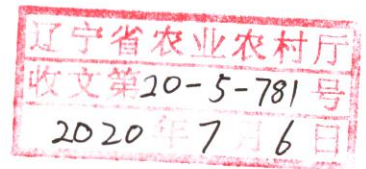 辽宁省农业农村厅
收文第20-5-781号
2020年7月6日